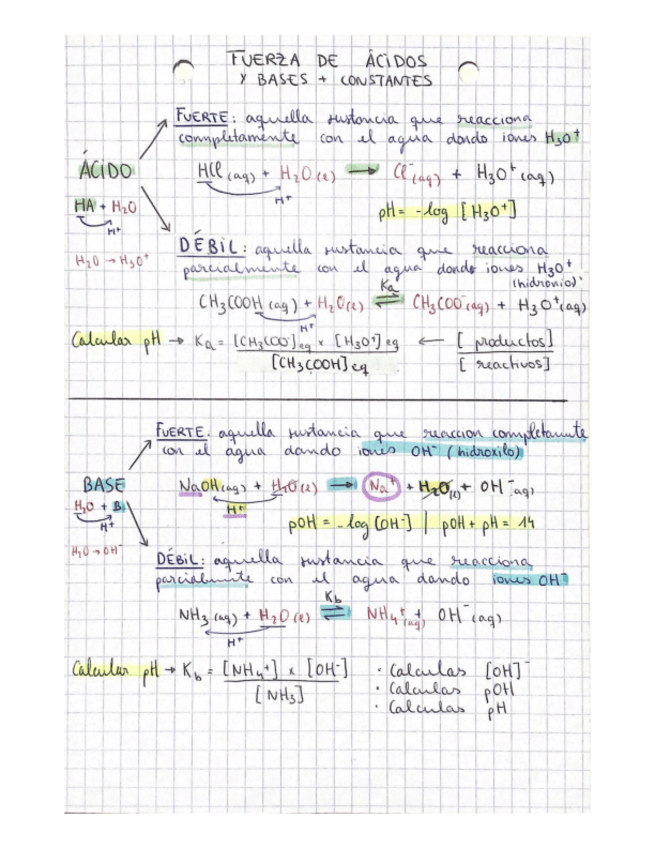 FUERZA DE ÁCIDOS
Y BASES + CONSTANTES
FUERTE: aquella sustancia que reacciona
completamente con el agua dando iones H3O+
ÁCIDO
HCl (aq) + H2O (l) → Cl-(aq) + H3O+ (aq)
H+
HA + H2O
H+
pH = -log [H3O+]
H2O → H3O+
DÉBIL: aquella sustancia que reacciona
parcialmente con el agua dando iones H3O+
(hidronio)
Ka
CH3COOH (aq) + H2O(l) ⇌ CH3COO-(aq) + H3O+(aq)
H+
Calcular pH → Ka = [CH3COO-]eq x [H3O+] eq ← [productos]
[CH3COOH] eq [reactivos]
FUERTE: aquella sustancia que reaccion completamente
con el agua dando iones OH- (hidroxilo)
BASE
NaOH(aq) + H2O(l) → Na+ + H2O(l) + OH-(aq)
H+
H2O + B
H+
pOH = -log [OH-] | pOH + pH = 14
H2O → OH-
DÉBIL: aquella sustancia que reacciona
parcialmente con el agua dando iones OH-
Kb
NH3 (aq) + H2O (l) ⇌ NH4+(aq) + OH-(aq)
H+
Calcular pH → Kb = [NH4+] x [OH-]
[NH3]
· Calculas [OH]-
· Calculas pOH
· Calculas pH